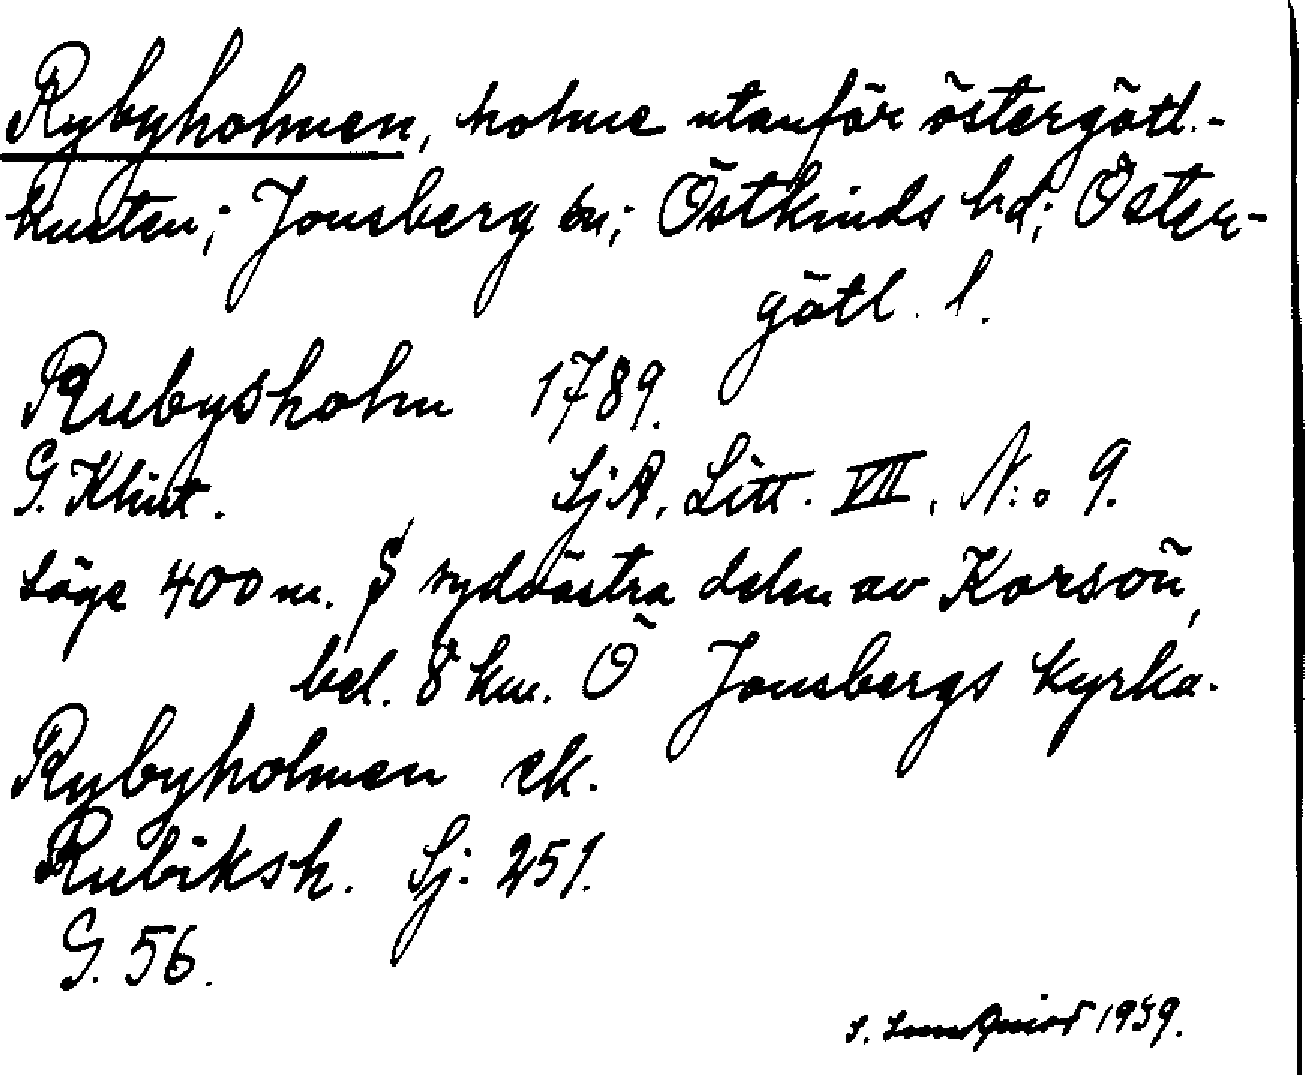 Rybyholmen, holme utanför östergötl.-
kusten; Jonsberg sn; Östkinds hd; Öster-
götl. l.
Rubysholm 1789.
G. Klint. SjA. Litt. VII. N:o 9.
Läge 400 m. S sydvästra delen av Korsön,
bel. 8 km. Ö Jonsbergs kyrka.
Rybyholmen ek.
Rubiksh. Sj: 251.
G. 56.
S. 1939.